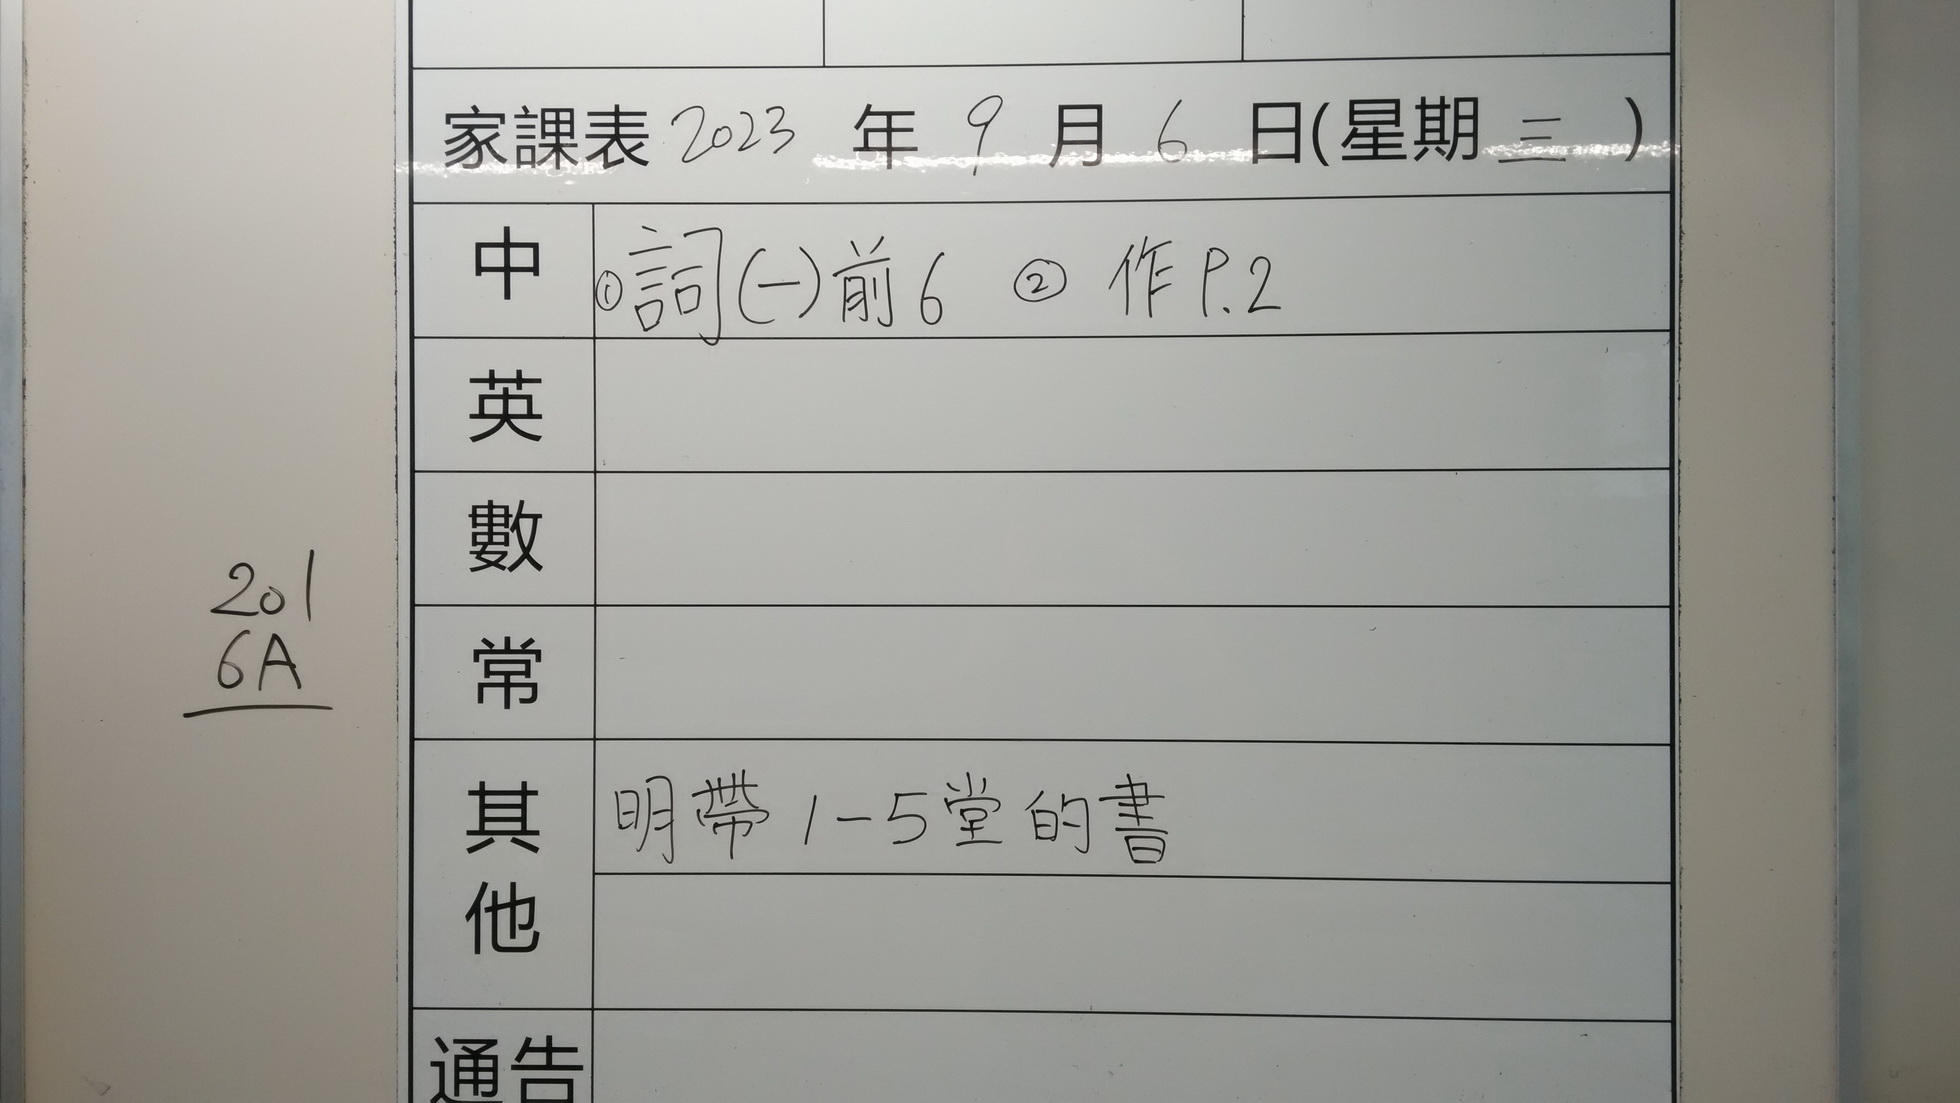 家課表 2023 年 9 月 6 日(星期 三 )
中 ①詞(一)前6 ② 作P.2
英
數
常
其他 明帶 1-5堂的書
通告
201
6A